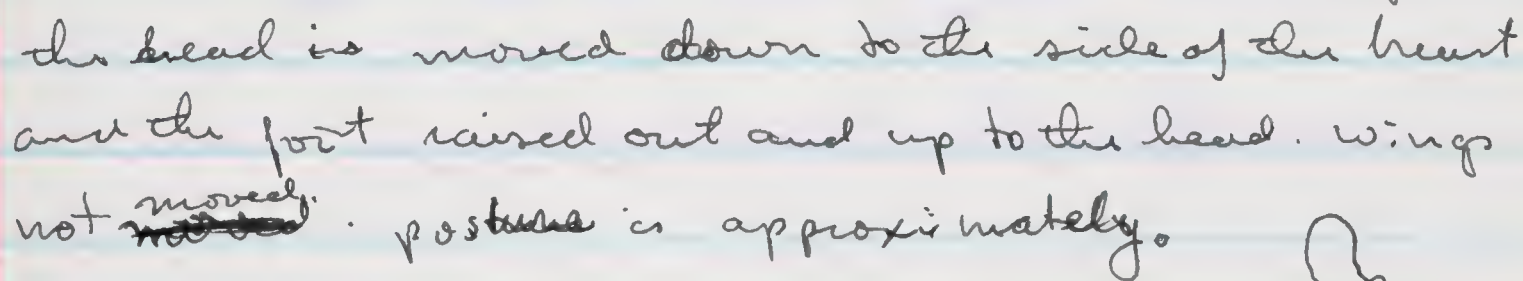 the head is moved down to the side of the breast
and the foot raised out and up to the head. wings
not moved. posture is approximately.